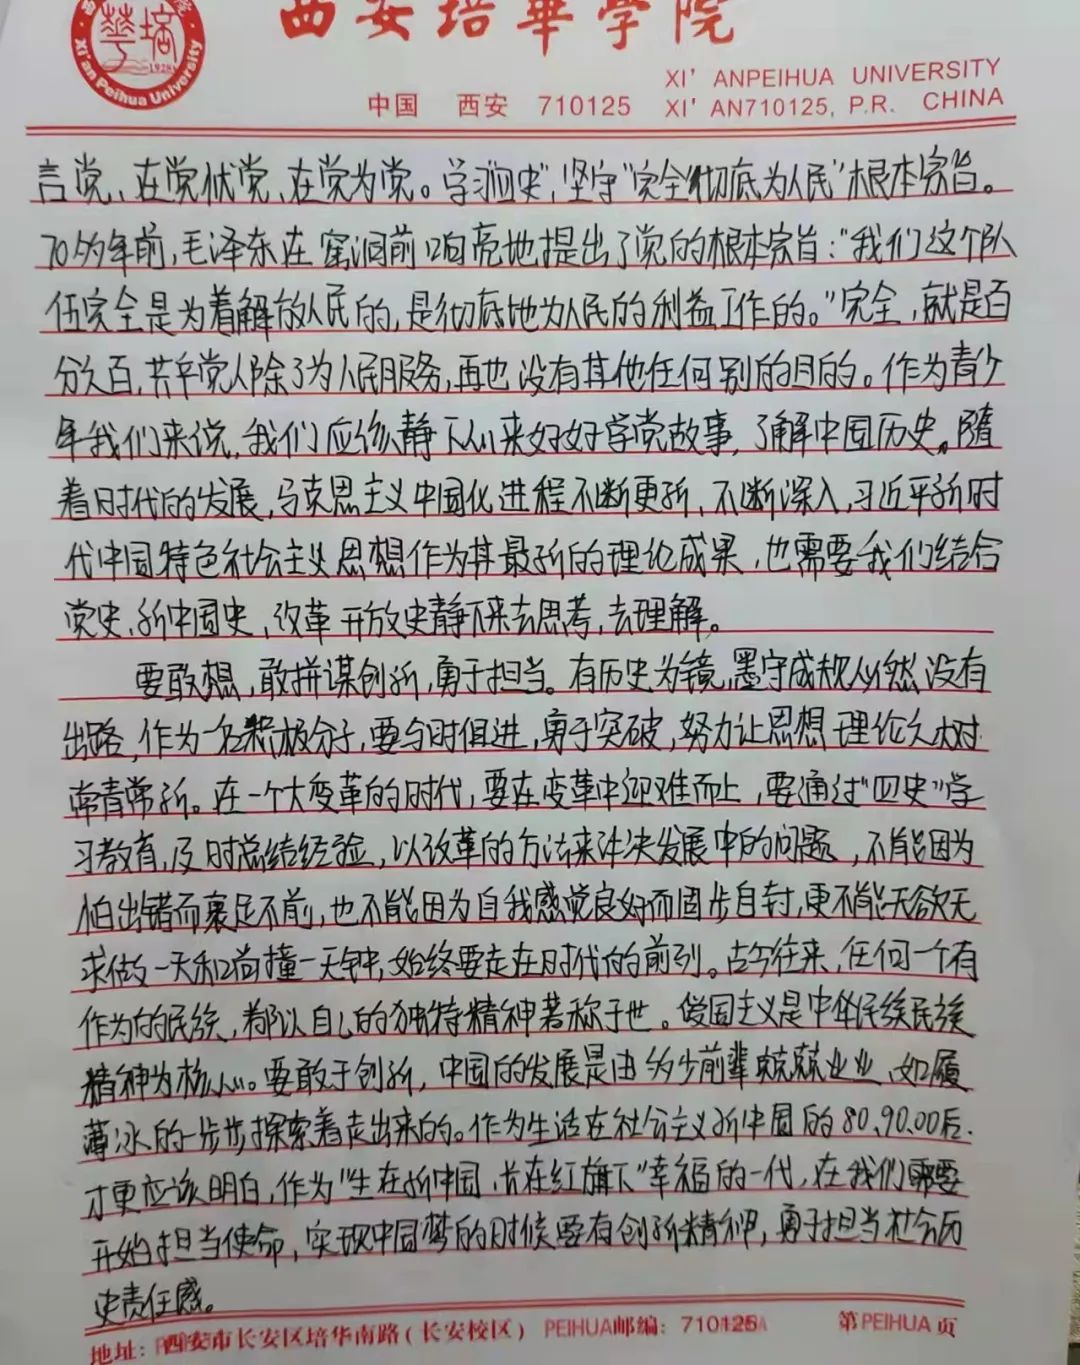 西安培華学院
Xi'an Peihua University
1928
XI' ANPEIHUA UNIVERSITY
中国 西安 710125 XI' AN710125, P.R. CHINA
言党、在党忧党、在党为党。学习"四史",坚守"完全""彻底为人民"根本宗旨。
70多年前,毛泽东在窑洞前响亮地提出了党的根本宗旨:"我们这个队
伍完全是为着解放人民的,是彻底地为人民的利益工作的。"完全,就是百
分之百,共产党人除了为人民服务,再也没有其他任何别的目的。作为青少
年我们来说,我们应该静下心来好好学党故事,了解中国历史。随
着时代的发展,马克思主义中国化进程不断更新、不断深入,习近平新时
代中国特色社会主义思想作为其最新的理论成果,也需要我们结合
党史、新中国史、改革开放史静下来去思考,去理解。
要敢想,敢拼谋创新,勇于担当。有历史为镜,墨守成规必然没有
出路,作为一名积极分子,要与时俱进,勇于突破,努力让思想理论之树
常青常新。在一个大变革的时代,要在变革中迎难而上,要通过"四史"学
习教育,及时总结经验,以改革的方法来决发展中的问题,不能因为
怕出错而裹足不前,也不能因为自我感觉良好而固步自封,更不能无欲无
求做一天和尚撞一天钟,始终要走在时代的前列。古今往来,任何一个有
作为的民族,都以自己的独特精神著称于世。爱国主义是中华民族民族
精神为核心。要敢于创新,中国的发展是由多少前辈兢兢业业、如履
薄冰的一步步探索着走出来的。作为生活在社会主义新中国的80、90、00后,
才更应该明白,作为"生在新中国,长在红旗下"幸福的一代,在我们需要
开始担当使命,实现中国梦的时候要有创新精神,勇于担当社会历
史责任感。
地址:西安市长安区培华南路(长安校区) PEIHUA邮编:710125 第PEIHUA页